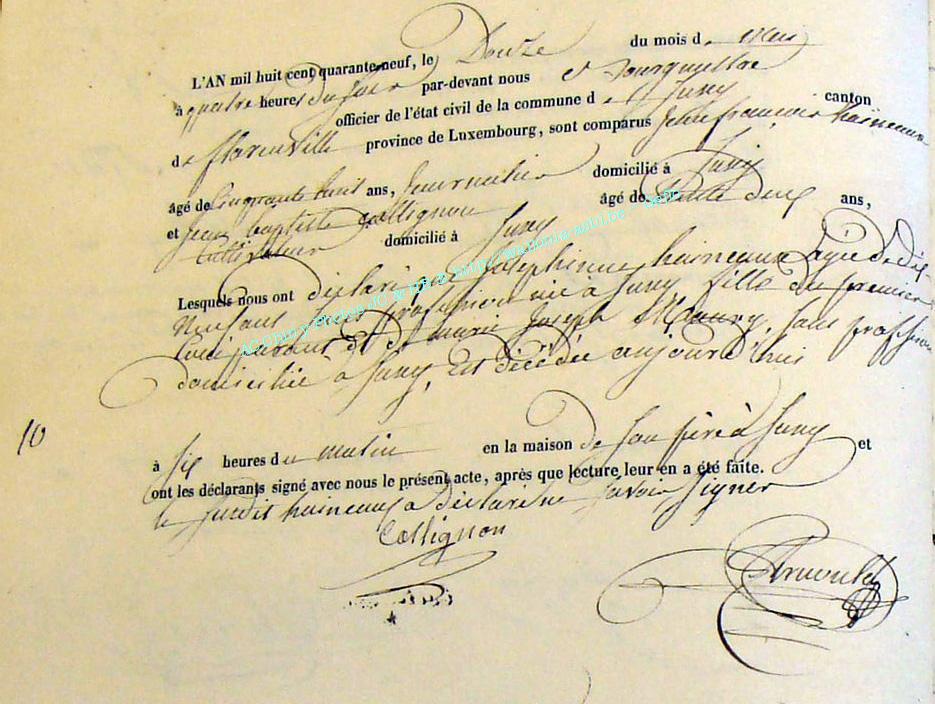 L'AN mil huit cent quarante-neuf, le Douze du mois de Mai
à quatre heures du soir par-devant nous
officier de l'état civil de la commune de Juny canton
de florenville province de Luxembourg, sont comparus Jean françois haineaux
âgé de Cinquante huit ans, Journalier domicilié à Juny
et Jean baptiste Collignon âgé de trente deux ans,
Cultivateur domicilié à Juny
Lesquels nous ont déclaré que Josephinne haineaux agée de dix-
Neuf ans sans profession née à Juny fille du premier
Comparant et de marie Joseph sans profession
domiciliée à Juny, Est décédée aujourd'hui
10
à Six heures du matin en la maison de Son père à Juny et
ont les déclarants signé avec nous le présent acte, après que lecture leur en a été faite.
le Susdit haineaux a déclaré ne savoir Signer
Collignon